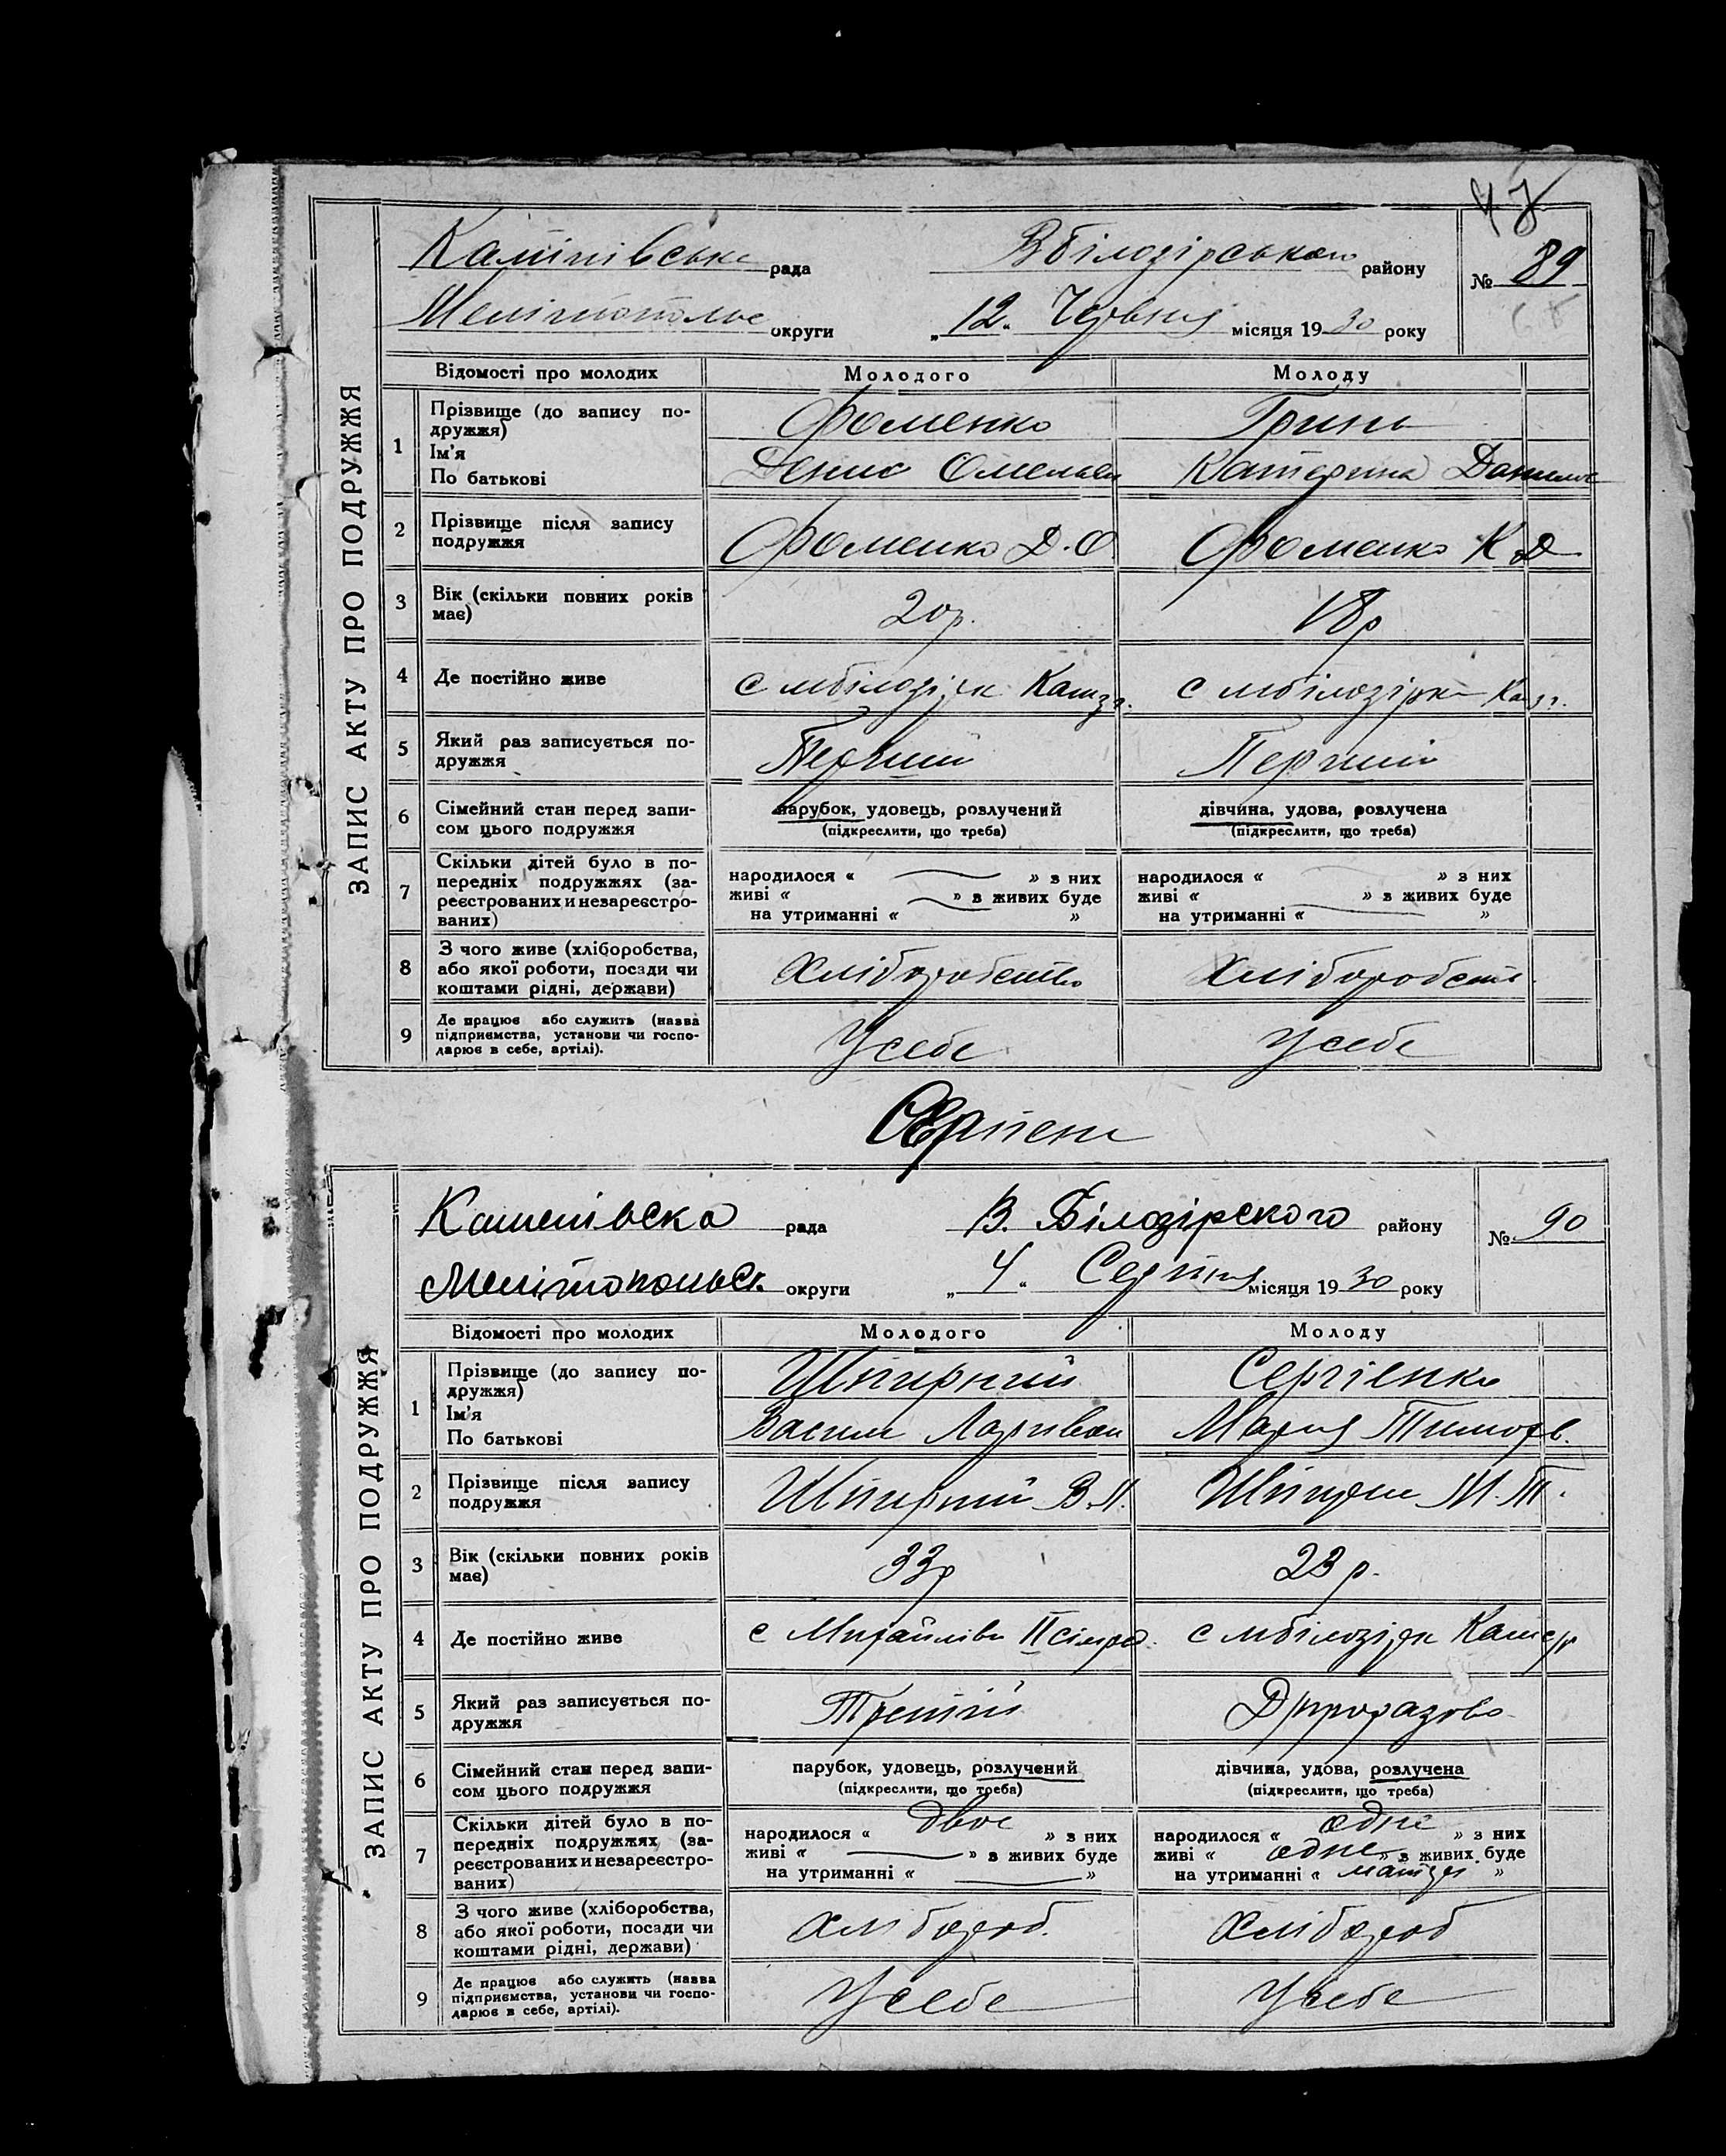 47
ЗАПИС АКТУ ПРО ПОДРУЖЖЯ
рада Вбілозірського району № 89
округи „12“ Червня місяця 1930 року
Відомості про молодих Молодого Молоду
1 Прізвище (до запису по-
дружжя) Фоменко Гринь
Ім'я
По батькові Денис Омельян Катерина Данилов
2 Прізвище після запису
подружжя Фоменко Д.О Фоменко К Д
3 Вік (скільки повних років
має) 20р. 18р
4 Де постійно живе с мбілозірк с мбілозірк
5 Який раз записується по-
дружжя Перший Перший
6 Сімейний стан перед запи-
сом цього подружжя парубок, удовець, розлучений дівчина, удова, розлучена
(підкреслити, що треба) (підкреслити, що треба)
7 Скільки дітей було в по-
передніх подружжях (за-
реєстрованих и незареєстро-
ваних)
народилося « » з них народилося « » з них
живі « » в живих буде живі « » з живих буде
на утриманні « » на утриманні « »
8 З чого живе (хліборобства,
або якої роботи, посади чи
коштами рідні, держави) Хліборобство Хліборобств
9 Де працює або служить (назва
підприємства, установи чи госпо-
дарює в себе, артілі). У себе У себе
Серпень
ЗАПИС АКТУ ПРО ПОДРУЖЖЯ
рада В. Білозірского району № 90
Мелітопольск. округи „4“ Серпня місяця 1930 року
Відомості про молодих Молодого Молоду
1 Прізвище (до запису по-
дружжя) Шпирний Сергіенко
Ім'я
По батькові Василь Ларивон Мария Тимоф.
2 Прізвище після запису
подружжя Шпирний В.Л. М.Т.
3 Вік (скільки повних років
має) 33р 23р.
4 Де постійно живе с Михайлівк ІІ сільрад. с мбілозірк
5 Який раз записується по-
дружжя Третій Другоразово
6 Сімейний стан перед запи-
сом цього подружжя парубок, удовець, розлучений дівчина, удова, розлучена
(підкреслити, що треба) (підкреслити, що треба)
7 Скільки дітей було в по-
передніх подружжях (за-
реєстрованих и незареєстро-
ваних)
народилося « двое » з них народилося « одне » з них
живі « » в живих буде живі « одне » з живих буде
на утриманні « » на утриманні « матери »
8 З чого живе (хліборобства,
або якої роботи, посади чи
коштами рідні, держави) Хлібороб. Хлібороб
9 Де працює або служить (назва
підприємства, установи чи госпо-
дарює в себе, артілі). У себе У себе